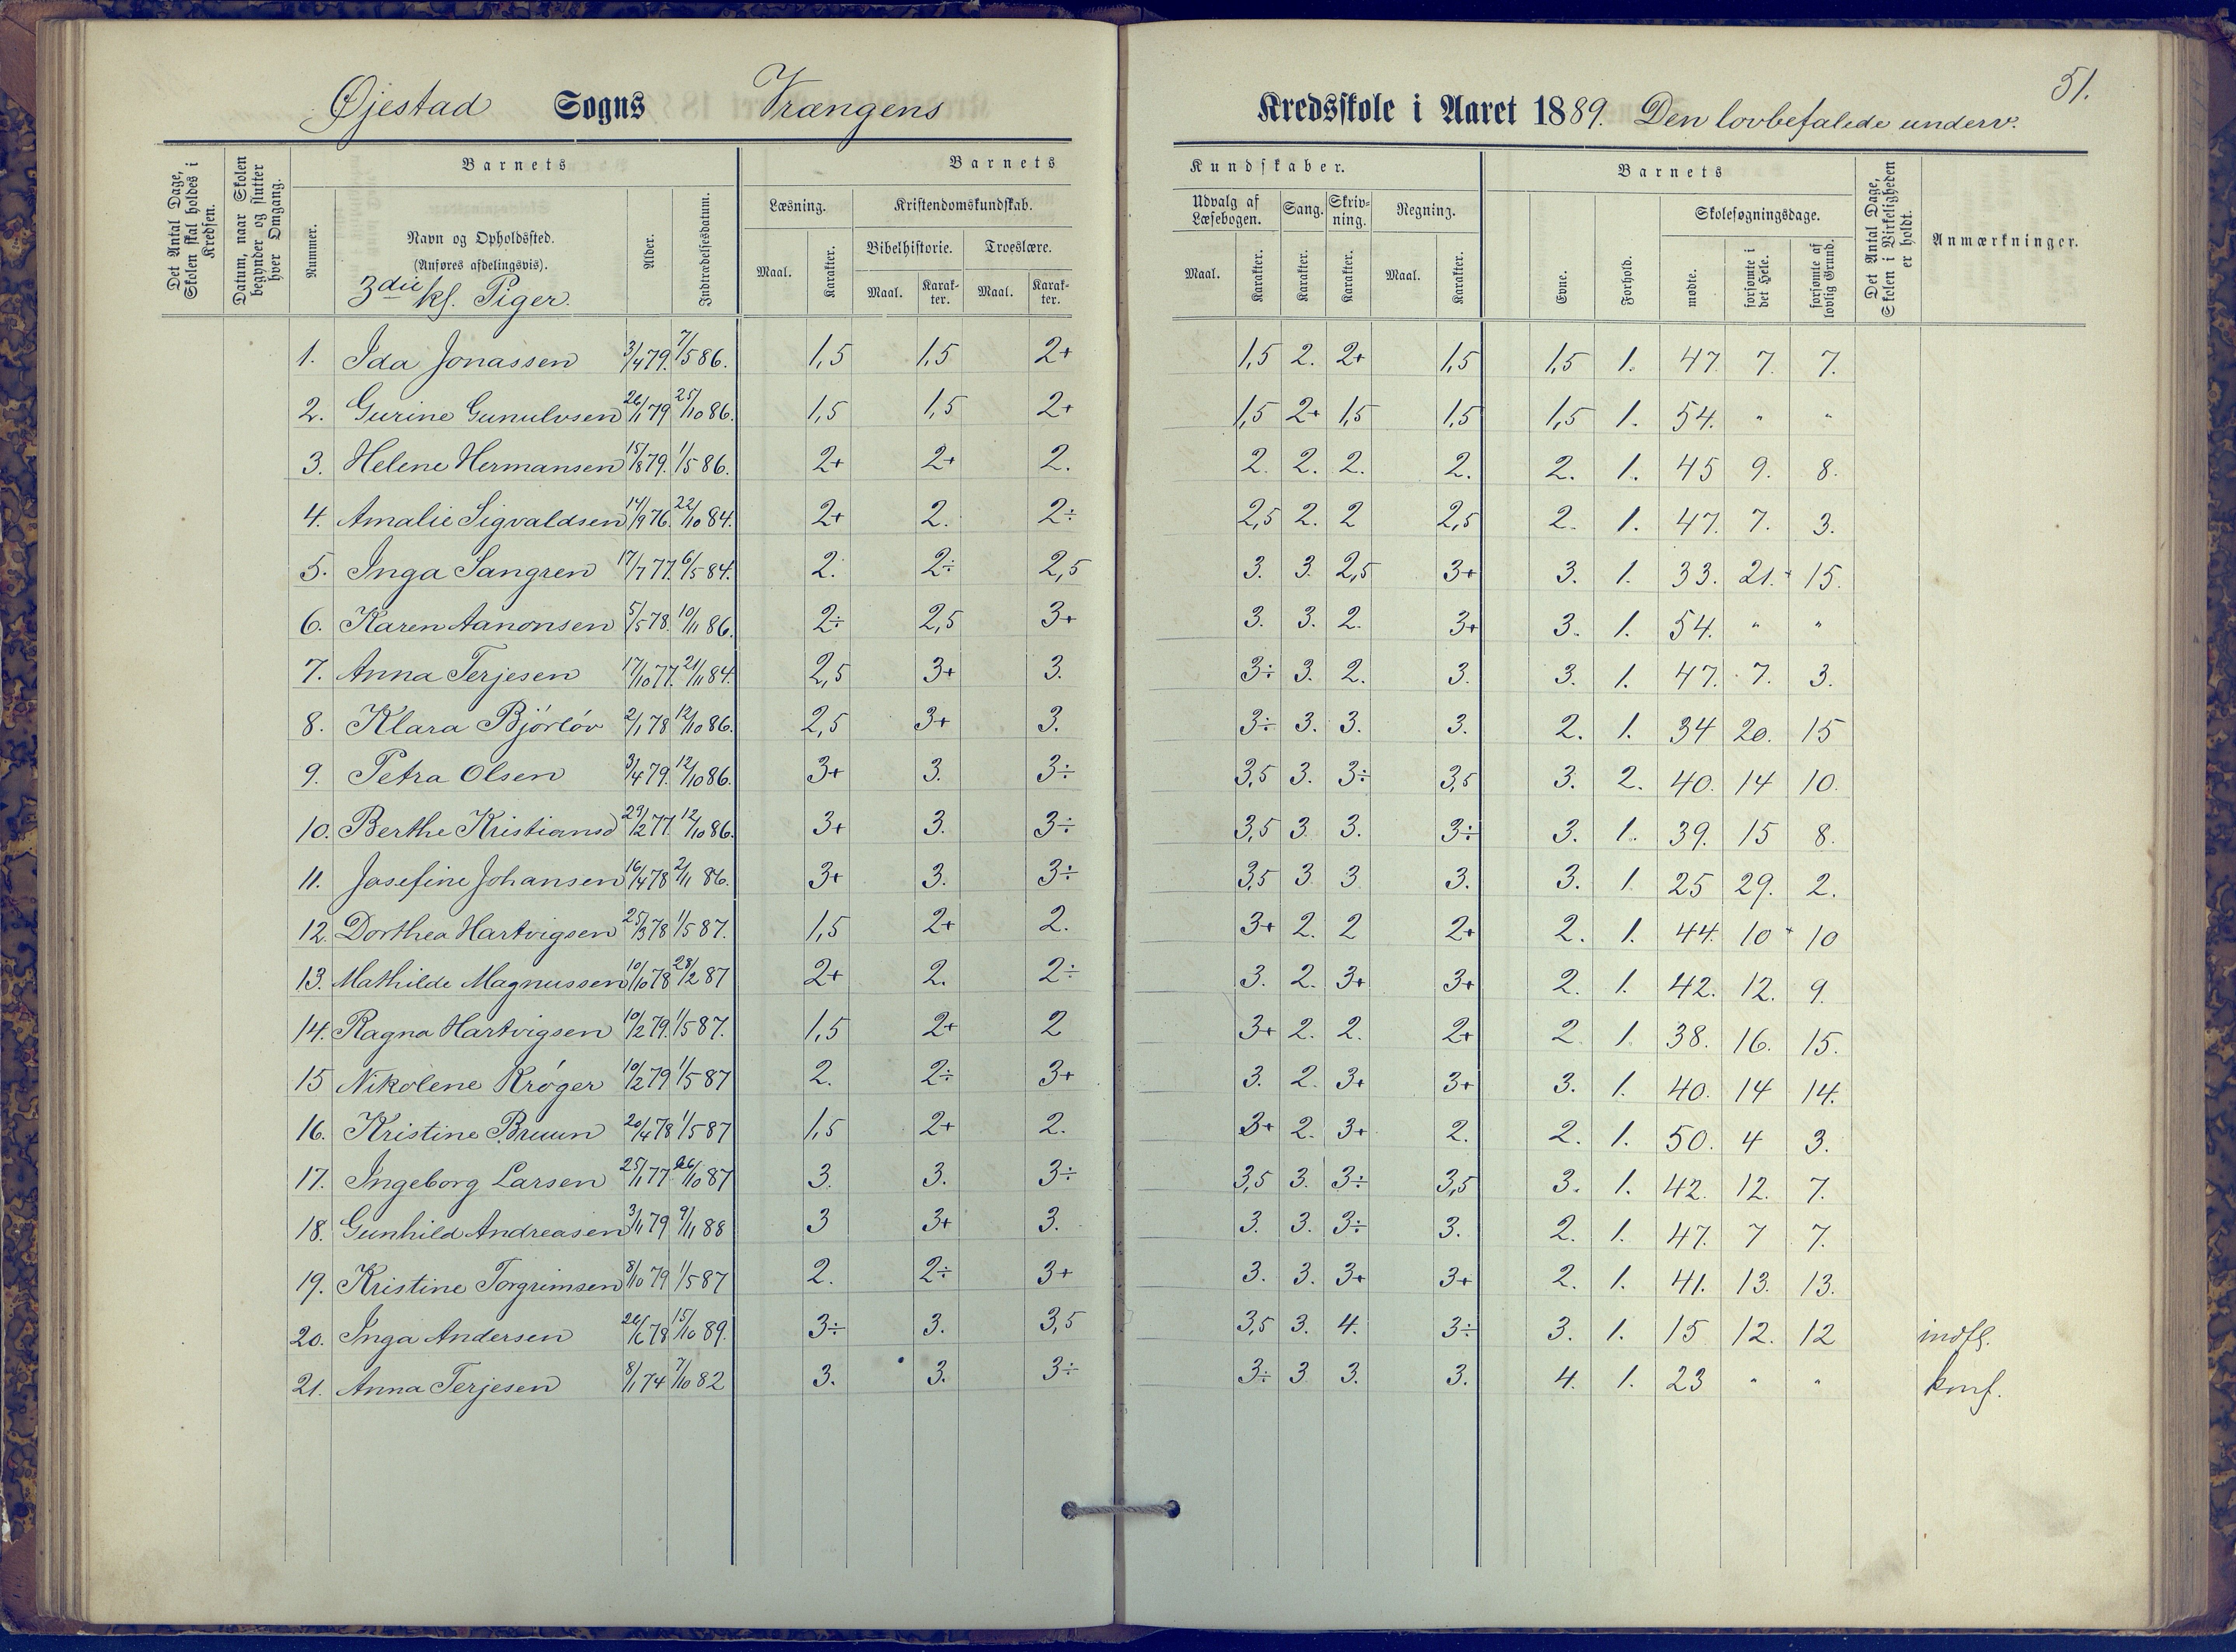 51.
Øjestad Sogns Vrængens Kredsskole i Aaret 1889. Den lovbefalede underv.
Det Antal Dage, Skolen skal holdes i Kredsen.
Datum, naar Skolen begynder og slutter hver Omgang.
Nummer.
Barnets
Navn og Opholdssted.
(Anføres afdelingsvis).
3die kl. Piger.
Alder.
Indtrædelsesdatum.
Barnets Kundskaber.
Læsning. Maal. Karakter.
Kristendomskundskab.
Bibelhistorie. Maal. Karakter.
Troeslære. Maal. Karakter.
Udvalg af Læsebogen. Maal. Karakter.
Sang. Karakter.
Skrivning. Karakter.
Regning. Maal. Karakter.
Barnets
Evne. Forhold.
Skolesøgningsdage.
mødte. forsømte i det Hele. forsømte af lovlig Grund.
Det Antal Dage, Skolen i Virkeligheden er holdt.
Anmærkninger.
1. Ida Jonassen 3/4 79. 7/5 86. 1,5 1,5 2+ 1,5 2. 2+ 1,5 1,5 1. 47. 7. 7.
2. Gurine Gunulvsen 26/1 79 25/10 86. 1,5 1,5 2+ 1,5 2+ 1,5 1,5 1,5 1. 54. " "
3. Helene Hermansen 15/8 79. 1/5 86. 2+ 2+ 2. 2. 2. 2. 2. 2. 1. 45 9. 8.
4. Amalie Sigvaldsen 14/9 76. 22/10 84. 2+ 2. 2÷ 2,5 2. 2 2,5 2. 1. 47. 7. 3.
5. Inga Sangren 17/7 77. 6/5 84. 2. 2÷ 2,5 3. 3. 2,5 3+ 3. 1. 33. 21. 15.
6. Karen Aanonsen 5/5 78. 10/11 86. 2÷ 2,5 3+ 3. 3. 2. 3+ 3. 1. 54. " "
7. Anna Terjesen 17/10 77. 21/11 84. 2,5 3+ 3. 3÷ 3. 2. 3. 3. 1. 47. 7. 3.
8. Klara Bjórlóv 2/1 78 12/10 86. 2,5 3+ 3. 3÷ 3. 3. 3. 2. 1. 34 20. 15
9. Petra Olsen 3/4 79. 12/10 86. 3+ 3. 3÷ 3,5 3. 3÷ 3,5 3. 2. 40. 14 10.
10. Berthe Kristiansd 29/12 77. 12/10 86. 3+ 3. 3÷ 3,5 3 3. 3÷ 3. 1. 39. 15 8.
11. Josefine Johansen 16/4 78 2/11 86. 3+ 3. 3÷ 3,5 3 3 3. 3. 1 25 29. 2.
12. Dorthea Hartvigsen 25/3 78 1/5 87. 1,5 2+ 2. 3+ 2. 2 2+ 2. 1. 44. 10 10
13. Mathilde Magnussen 10/10 78 28/2 87 2+ 2. 2÷ 3. 2. 3+ 3+ 2. 1. 42. 12. 9.
14. Ragna Hartvigsen 10/2 79. 1/5 87. 1,5 2+ 2 3+ 2. 2. 2+ 2 1. 38. 16. 15.
15 Nikolene Króger 10/2 79 1/5 87 2. 2÷ 3+ 3. 2. 3+ 3+ 3. 1. 40. 14 14.
16. Kristine Bruun 20/4 78 1/5 87 1,5 2+ 2. 3+ 2. 3+ 2. 2. 1. 50. 4 3.
17. Ingeborg Larsen 25/1 77. 26/10 87 3. 3. 3÷ 3,5 3. 3÷ 3,5 3. 1. 42. 12. 7.
18. Gunhild Andreasen 3/11 79 9/11 88 3 3+ 3. 3. 3. 3÷ 3. 2. 1. 47. 7 7.
19. Kristine Torgrimsen 8/10 79 1/5 87 2. 2÷ 3+ 3. 3. 3+ 3+ 2. 1. 41. 13. 13.
20. Inga Andersen 26/6 78 15/10 89. 3÷ 3. 3,5 3,5 3. 4. 3÷ 3. 1. 15 12. 12 indfl.
21. Anna Terjesen 8/1 74 7/10 82 3. 3. 3÷ 3÷ 3 3. 3. 4. 1. 23 " " konf.